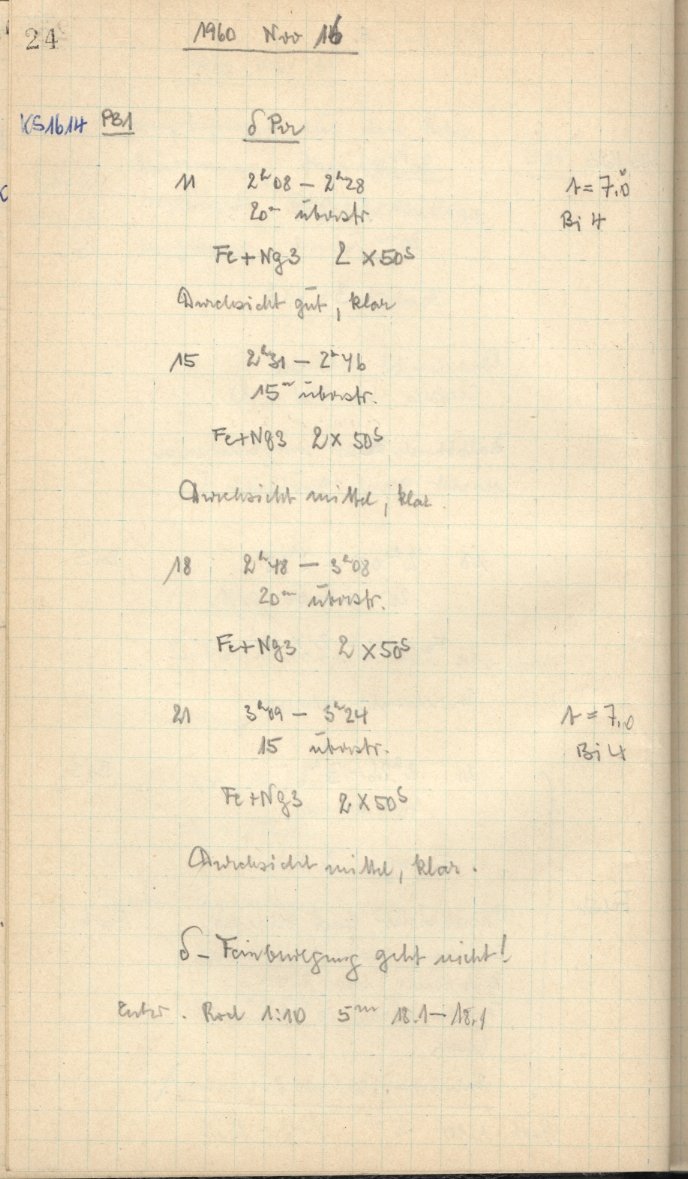 24
1960 Nov 16
KS1614 PB1 δ Per
11 2ʰ08 – 2ʰ28 t = 7,0
20ᵐ überstr. Bi 4
Fe+Ng3 2 x 50ˢ
Durchsicht gut, klar
15 2ʰ31 – 2ʰ46
15ᵐ überstr.
Fe+Ng3 2 x 50ˢ
Durchsicht mittel, klar.
18 2ʰ48 – 3ʰ08
20ᵐ überstr.
Fe+Ng3 2 x 50ˢ
21 3ʰ09 – 3ʰ24 t = 7,0
15 überstr. Bi 4
Fe+Ng3 2 x 50ˢ
Durchsicht mittel, klar.
δ – Feinbewegung geht nicht!
Entw. Rod 1:10 5ᵐ 18.1–18,1